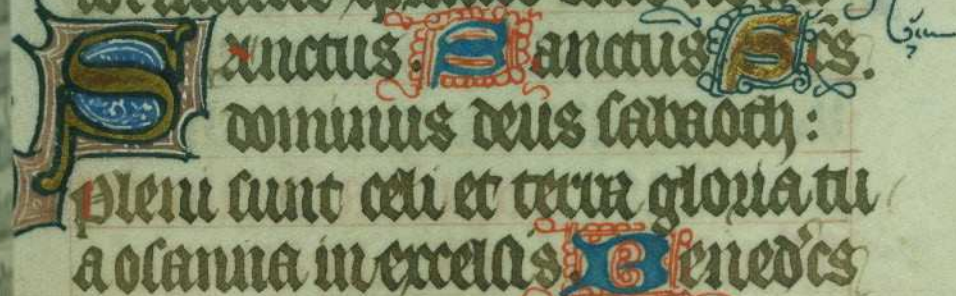 Sanctus. Sanctus Scs.
dominus deus sabaoth:
Pleni sunt celi et terra gloria tu
a osanna in excelsis. Benedcs